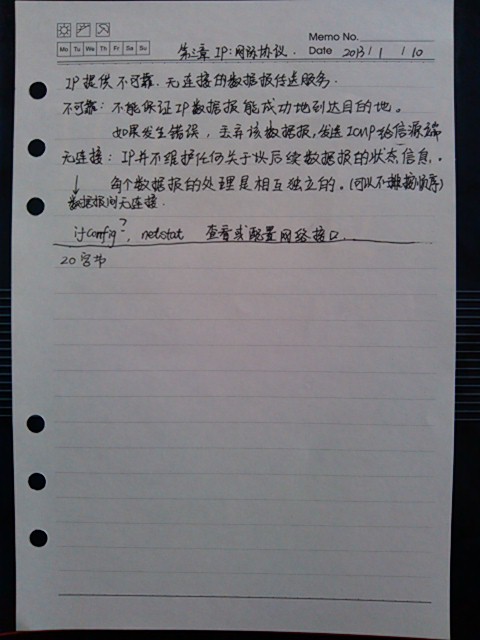 Memo No.
Mo Tu We Th Fr Sa Su
第三章 IP:网际协议. Date 2013 / 1 / 10
IP提供不可靠.无连接的数据报传送服务.
不可靠: 不能保证IP数据报能成功地到达目的地。
如果发生错误,丢弃该数据报,发送ICMP给信源端
无连接: IP并不维护任何关于以后续数据报的状态信息.
每个数据报的处理是相互独立的.(可以不按顺序)
数据报间无连接.
ifconfig?, netstat 查看或配置网络接口...
20字节